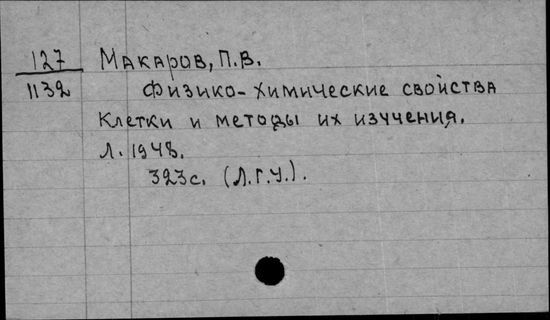 127 Макаров, П.В.
1132 Физико-химические свойства
клетки и методы их изучения.
Л. 1948.
323с. (Л.Г.У.).